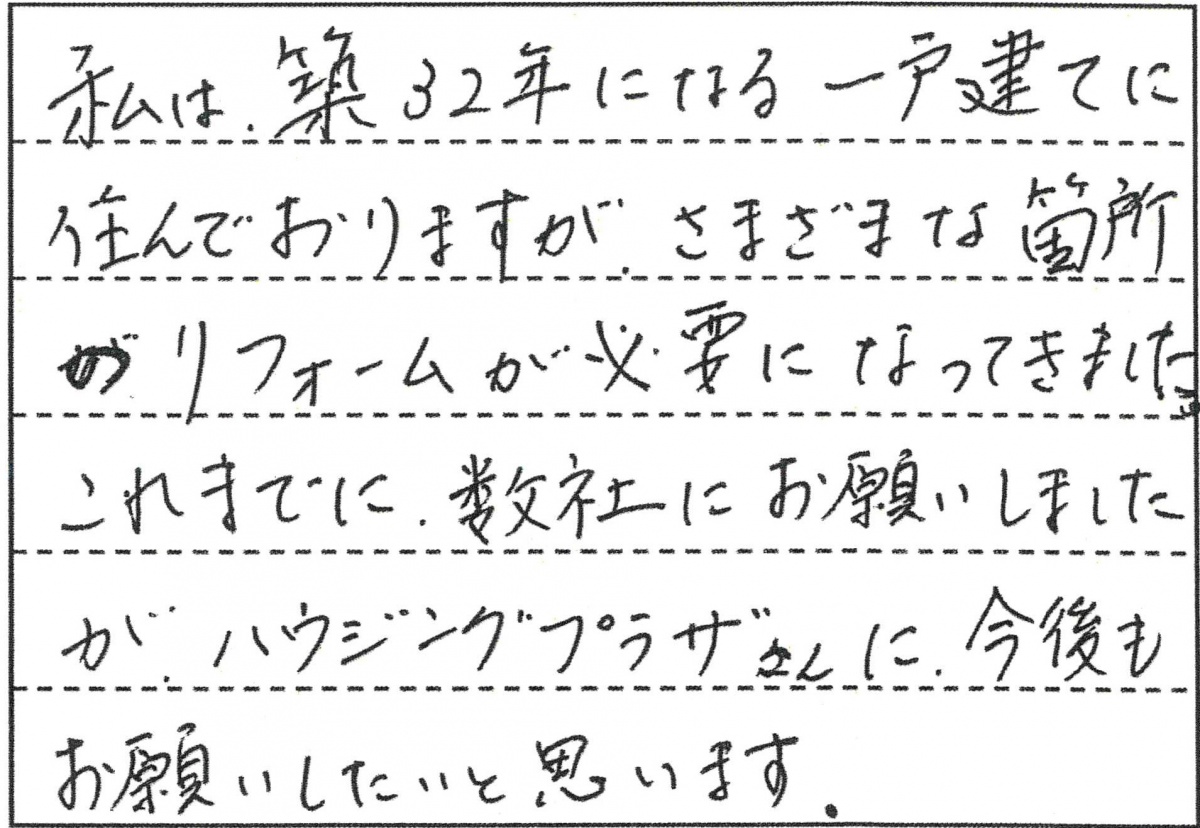 私は、築32年になる一戸建てに
住んでおりますが、さまざまな箇所
がリフォームが必要になってきました。
これまでに、数社にお願いしました
が、ハウジングプラザさんに、今後も
お願いしたいと思います。